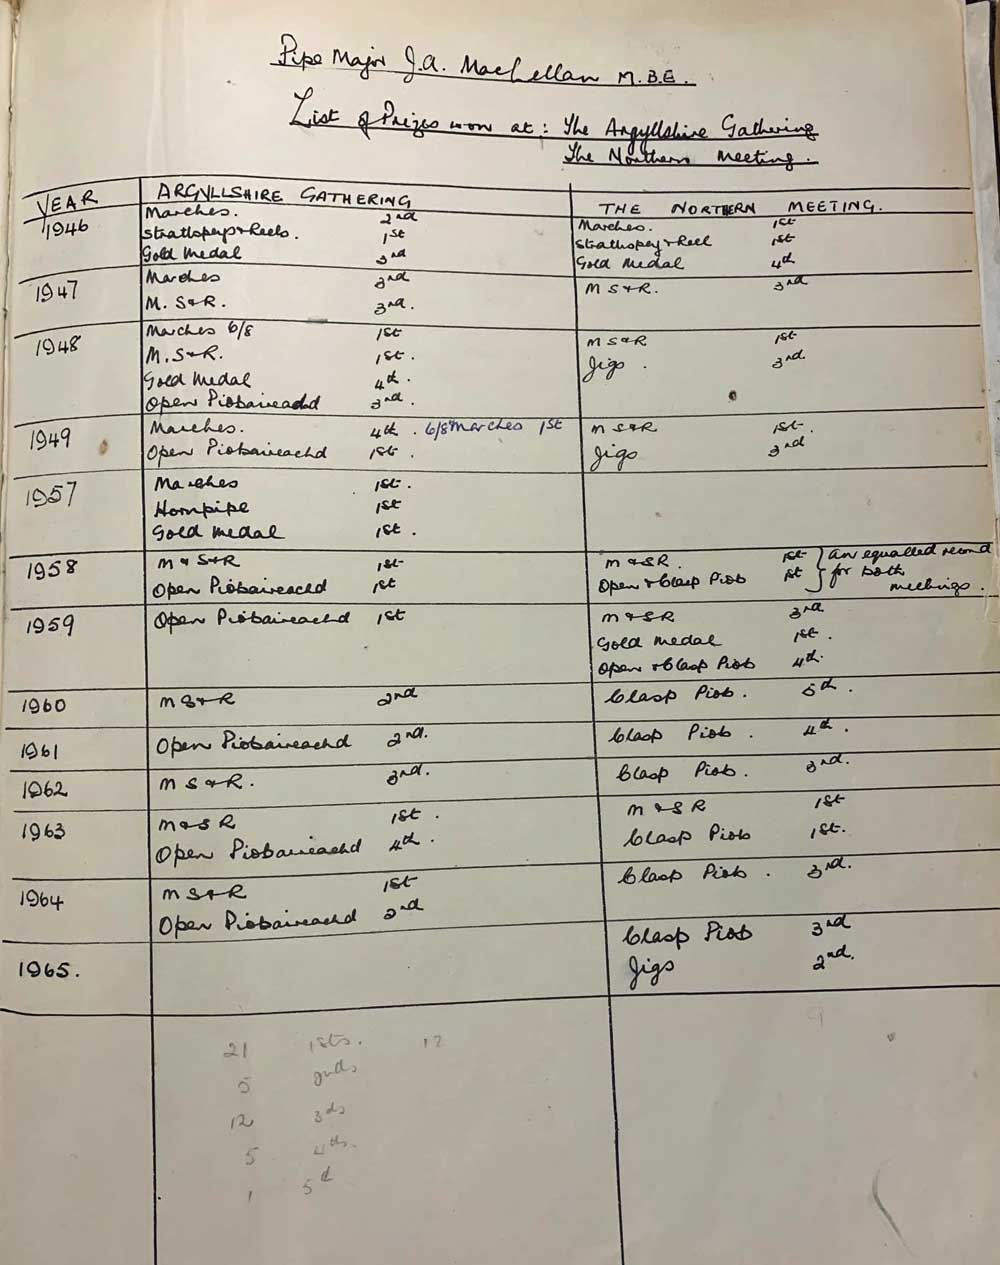 Pipe Major J.A. MacLellan M.B.E.
List of Prizes won at: The Argyllshire Gathering
The Northern Meeting.
YEAR ARGYLLSHIRE GATHERING THE NORTHERN MEETING.
1946 Marches. 2nd Marches. 1st
Strathspeys & Reels. 1st Strathspey & Reel 1st
Gold Medal 3rd Gold Medal 4th
1947 Marches 3rd M S & R. 3rd
M. S & R. 3rd.
1948 Marches 6/8 1st M S & R 1st
M. S & R. 1st. Jigs. 3rd
Gold Medal 4th.
Open Piobaireachd 3rd.
1949 Marches. 4th. 6/8 Marches 1st M S & R 1st.
Open Piobaireachd 1st. Jigs 3rd
1957 Marches 1st.
Hornpipe 1st
Gold Medal 1st.
1958 M & S & R 1st M & SR. 1st } An equalled record
Open Piobaireachd 1st Open & Clasp Piob 1st } for both
meetings.
1959 Open Piobaireachd 1st M & SR 3rd
Gold Medal 1st.
Open & Clasp Piob 4th.
1960 M S & R 2nd Clasp Piob. 5th.
1961 Open Piobaireachd 2nd. Clasp Piob. 4th.
1962 M S & R. 3rd. Clasp Piob. 3rd.
1963 M & S R 1st. M & S R 1st
Open Piobaireachd 4th. Clasp Piob 1st.
1964 M S & R 1st Clasp Piob. 3rd.
Open Piobaireachd 2nd
1965. Clasp Piob 3rd
Jigs 2nd.
21 1sts. 12 9
5 2nds
12 3ds
5 4ths.
1 5th